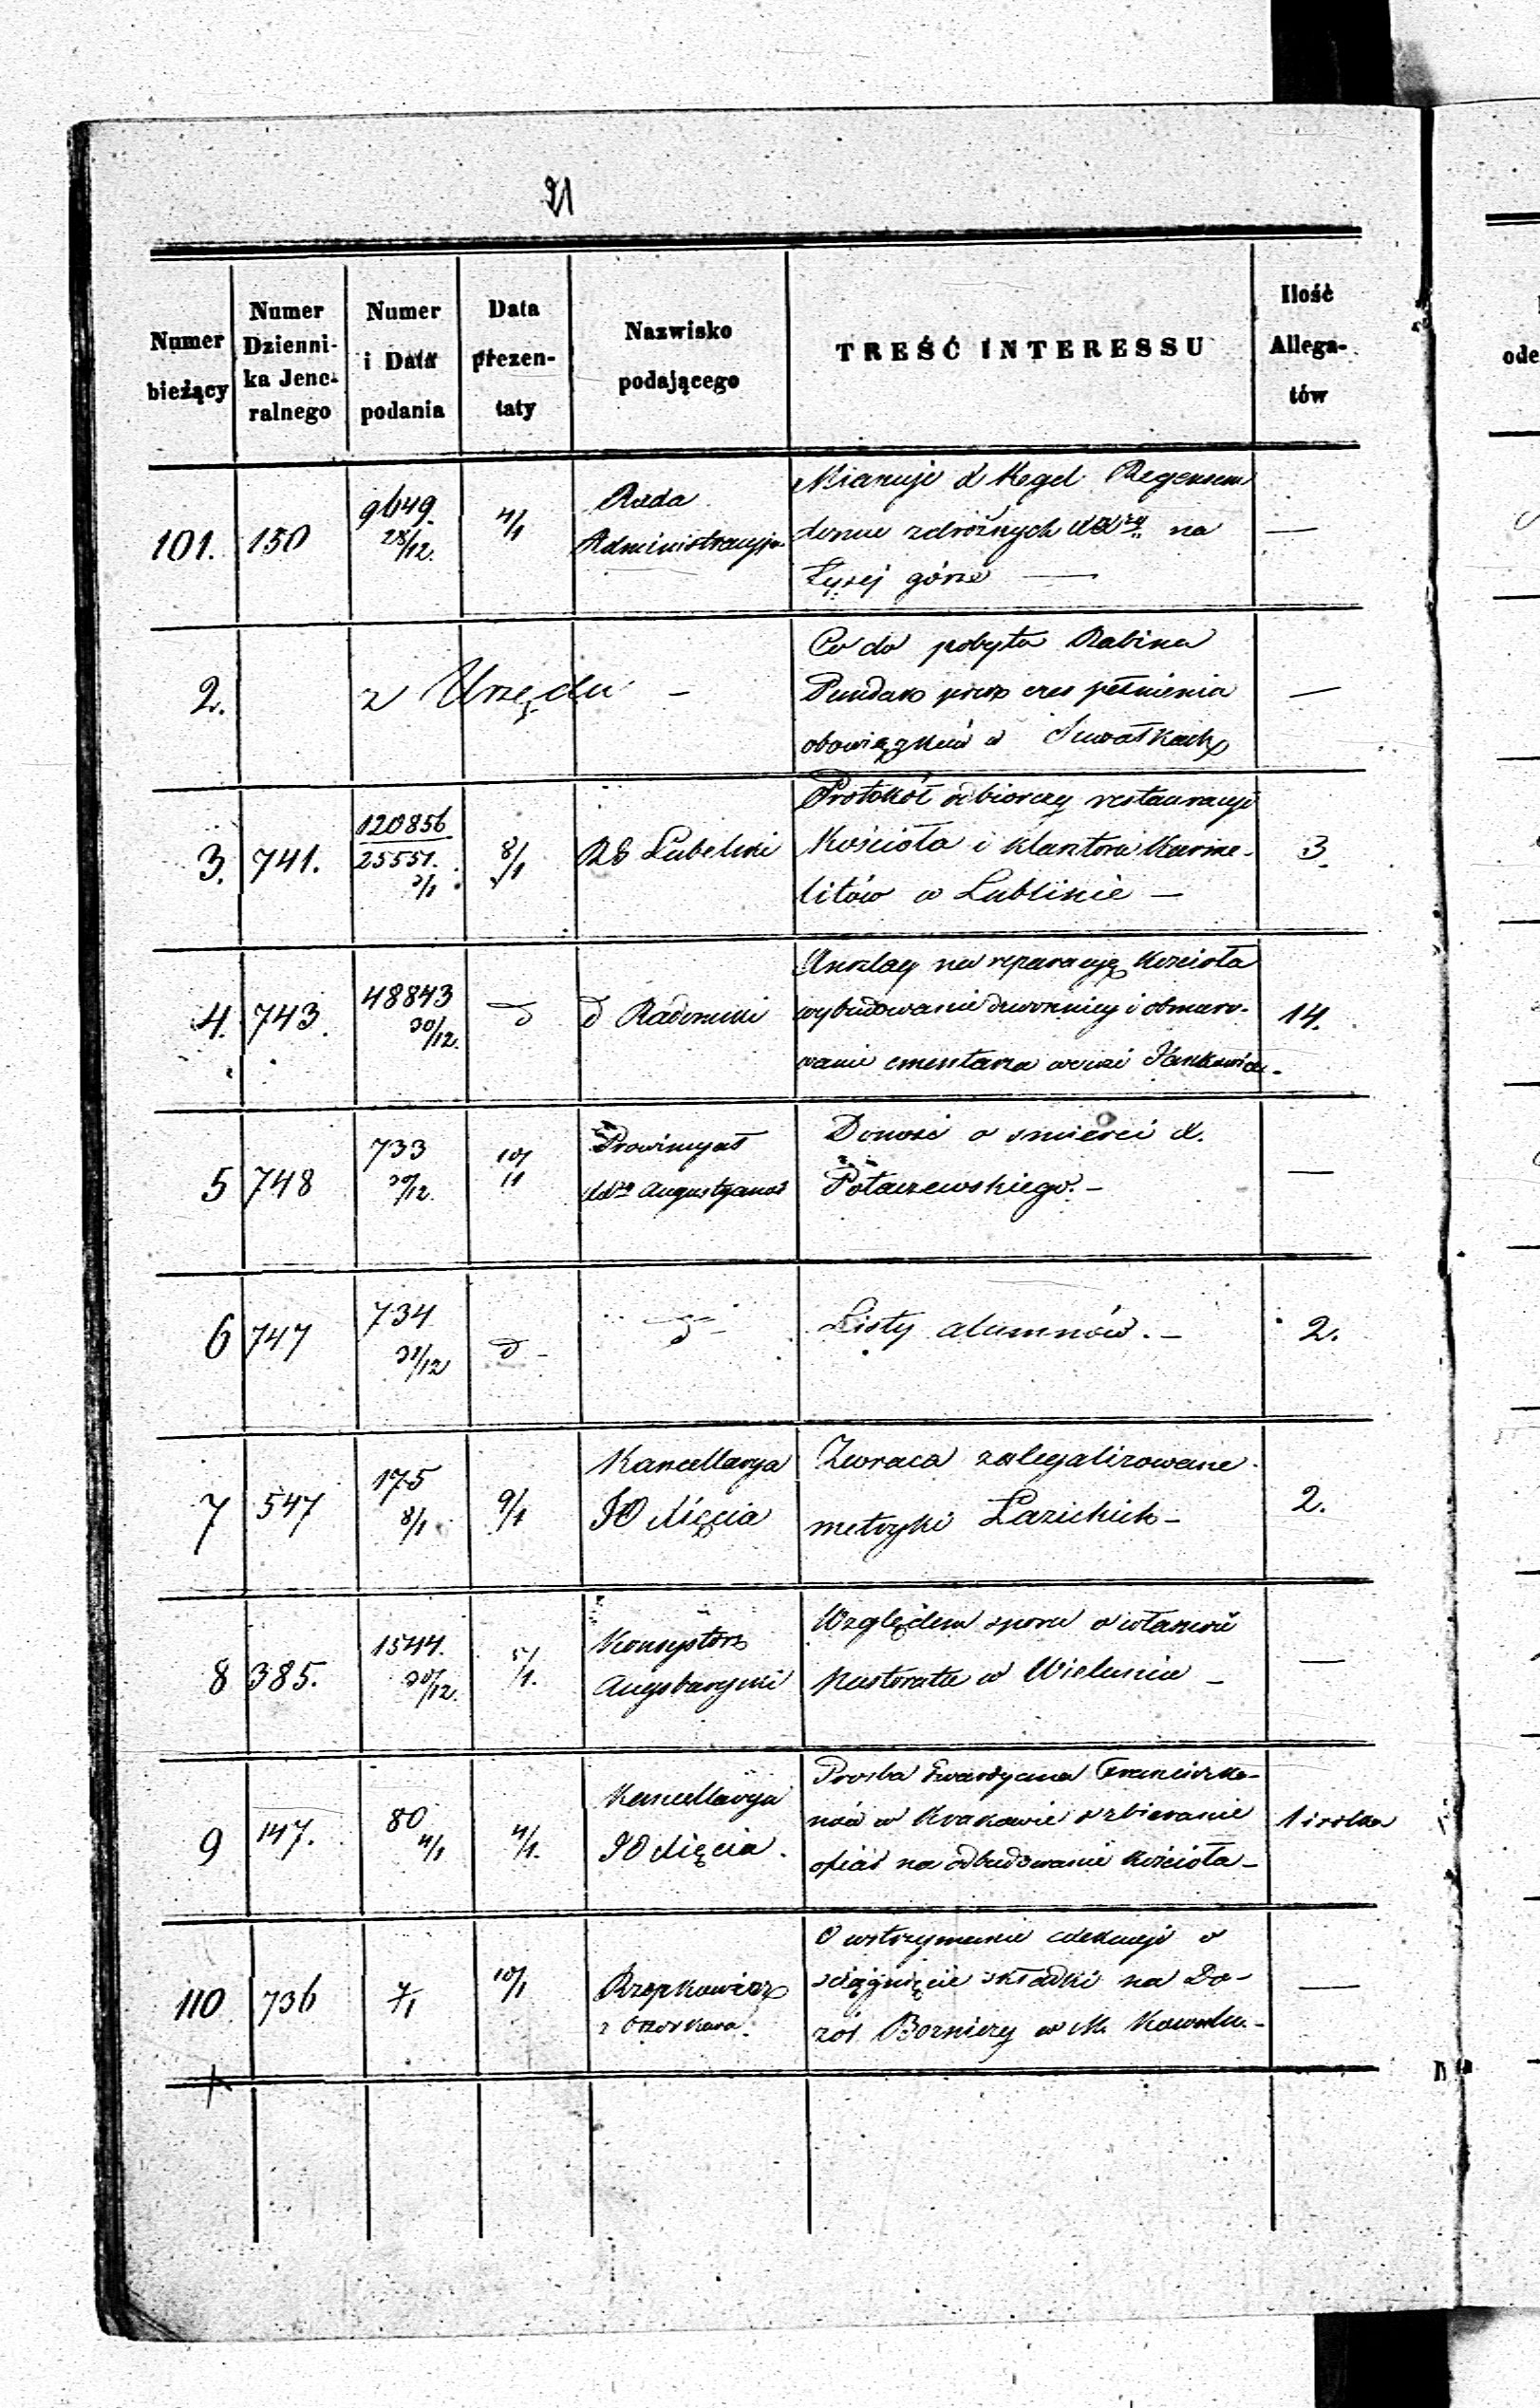 21
Numer bieżący
Numer Dzienni- ka Jene- ralnego
Numer i Data podania
Data prezen- taty
Nazwisko podającego
TREŚĆ INTERESSU
Ilość Allega- tów
101. 150 9649. 28/12. 4/1
Rada
Administracyjn.
Mianuje X Kegel Regensem
domu zdrożnych XX na
Łysej górze —
—
2. z Urzędu —
Co do pobytu Rabina
Pundaw przez czas pełnienia
obowiązków w Suwałkach
—
3. 741. 120856 25551. 3/1 8/1
RG Lubelski
Protokół odbiorczy restauracyi
Kościoła i klasztoru Karme-
litów w Lublinie —
3.
4. 743. 48843 30/12. d
d Radomski
Anszlag na reparacyę Kościoła
wybudowanie dzwonnicy i obmuro-
wanie cmentarza we wsi
14.
5 748 733 30/12. 10/1
Prowincyał
XX Augustyanów
Donosi o śmierci X.
Potaszewskiego. —
—
6 747 734 31/12 d —
d —
Listy alumnów. —
2.
7 547 175 8/1 9/1
Kancellarya
JO Xięcia
Zwraca zalegalizowane
metryki Łazickich —
2.
8 385. 1544. 30/12. 5/1.
Konsystorz
Augsburgski
Względem sporu o własność
Pastoratu w Wieluniu —
—
9 147. 80 4/1 4/1.
Kancellarya
JO Xięcia.
Prośba Gwardyana Franciszka-
nów w Krakowie o zbieranie
ofiar na odbudowanie Kościoła —
1
110 736 7/1 10/1
Rzepkowicz
z Ozorkowa.
O wstrzymanie exekucyi o
ściągnięcie składki na Do-
zór Bożniczy w M. Kowalu. —
—